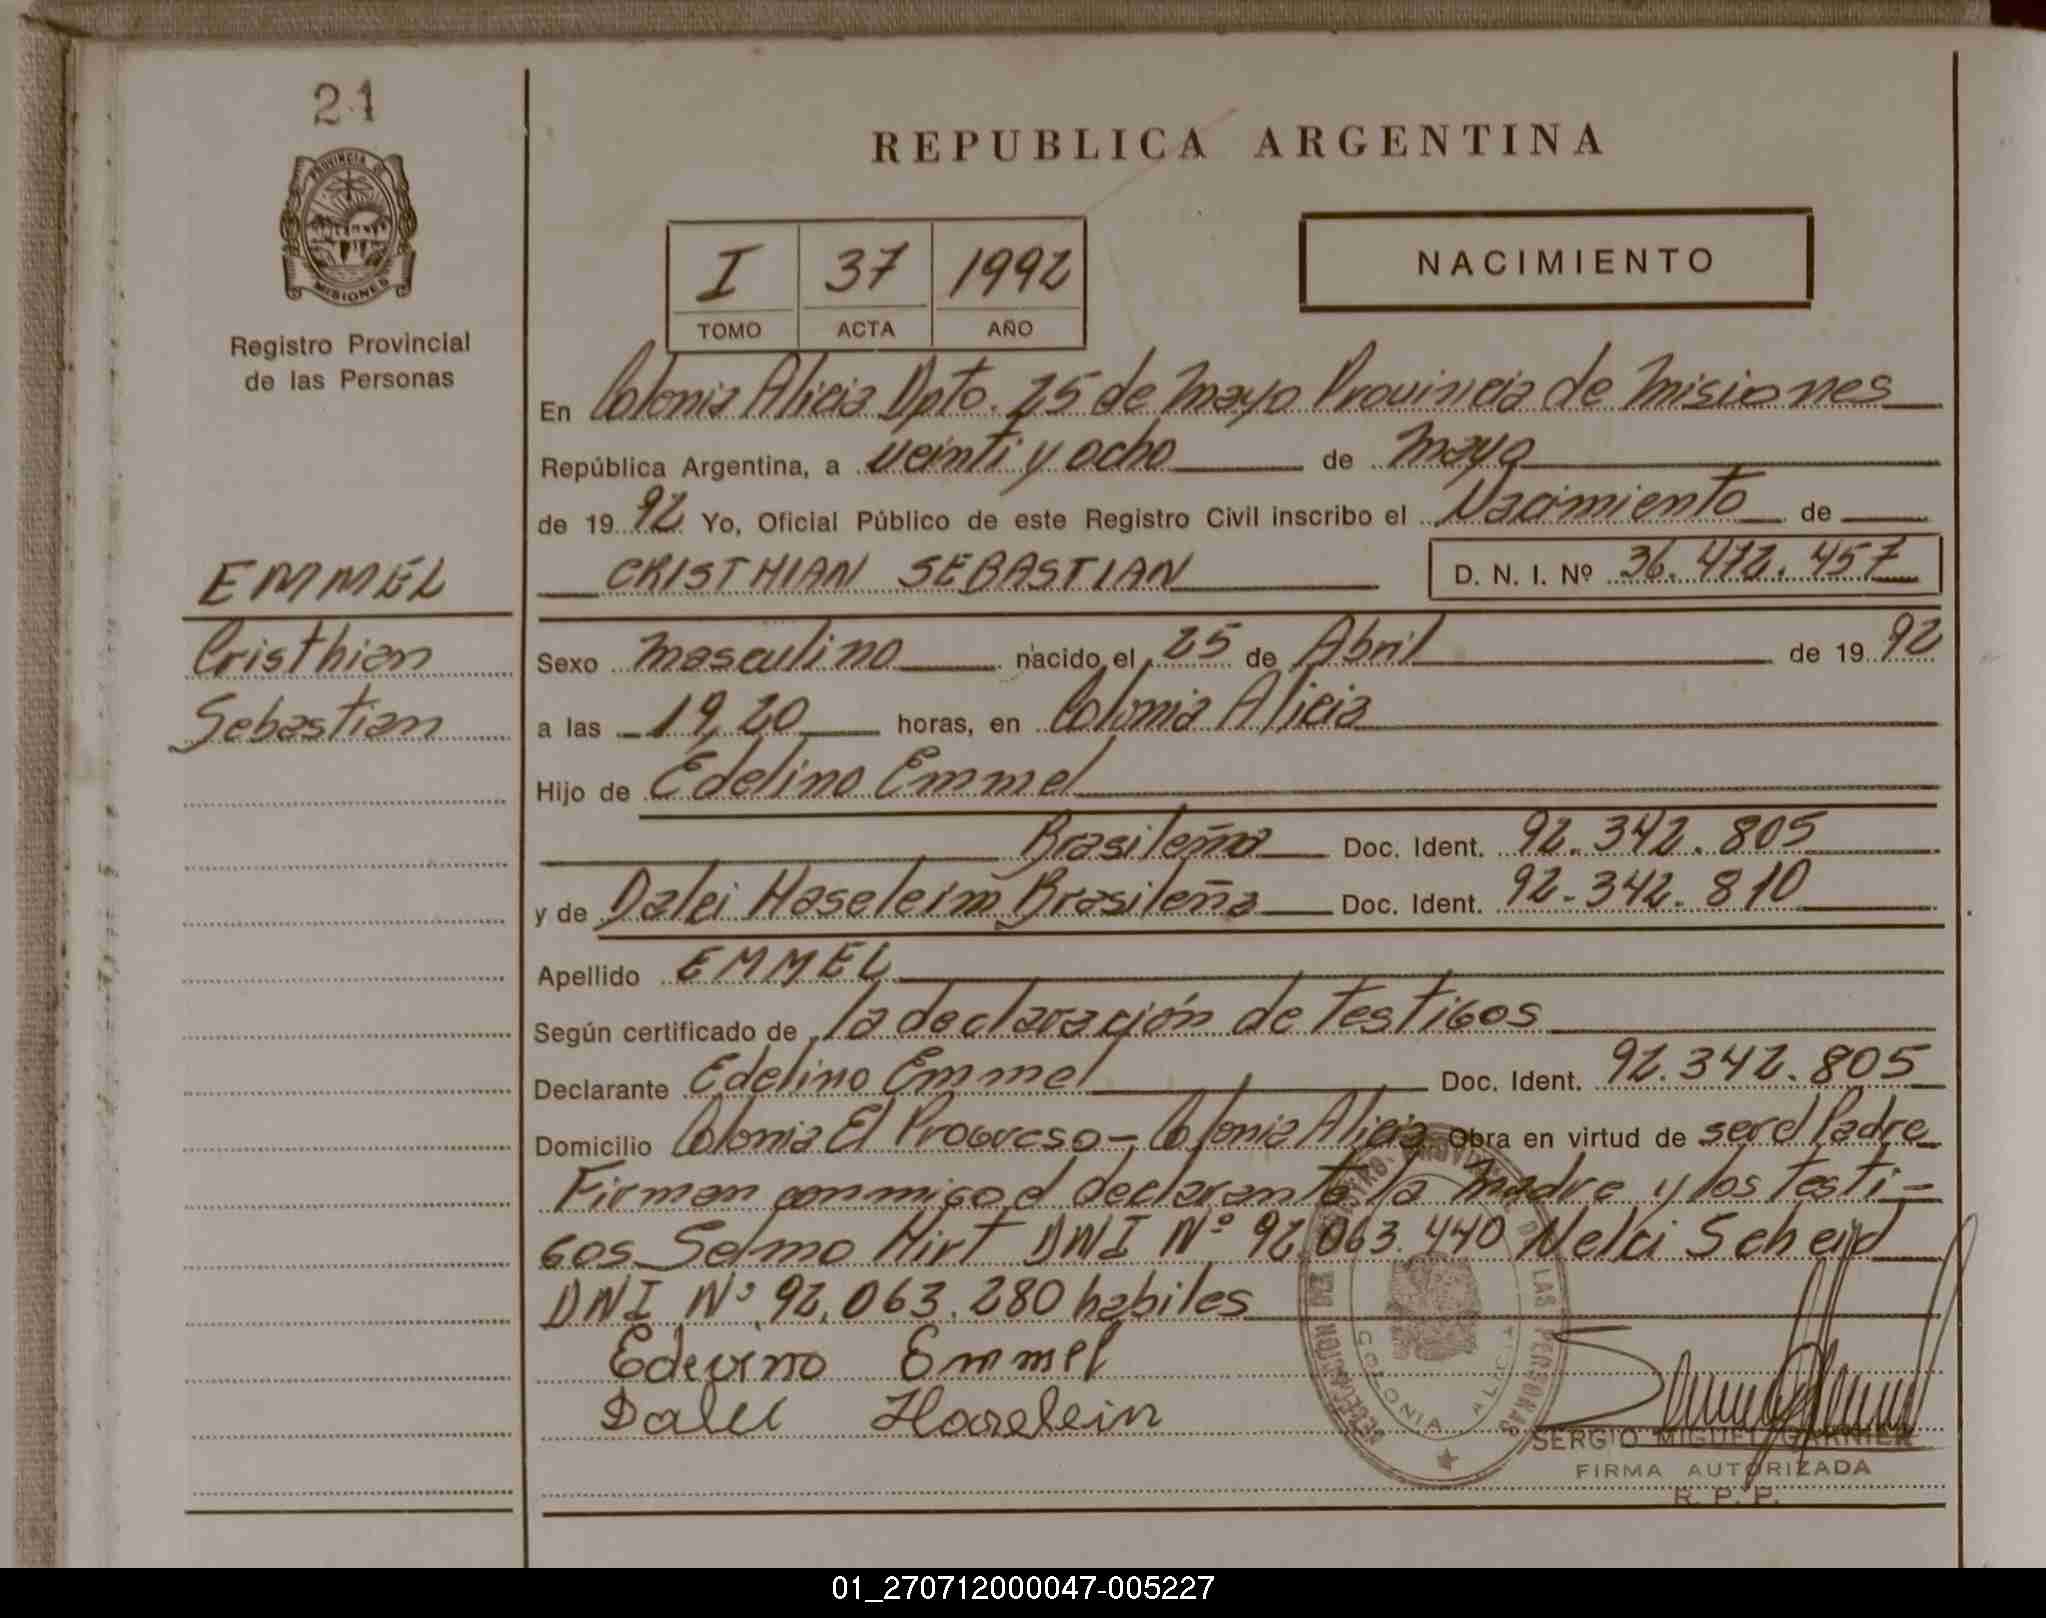 21
PROVINCIA DE
MISIONES
Registro Provincial
de las Personas
EMMEL
Cristhian
Sebastian
REPUBLICA ARGENTINA
I 37 1992
TOMO ACTA AÑO
NACIMIENTO
En Colonia Alicia Dpto. 25 de Mayo Provincia de Misiones
República Argentina, a veinti y ocho de Mayo
de 1992 Yo, Oficial Público de este Registro Civil inscribo el Nacimiento de
CRISTHIAN SEBASTIAN D. N. I. Nº 36.472.457
Sexo masculino nacido el 25 de Abril de 1992
a las 19,20 horas, en Colonia Alicia
Hijo de Edelino Emmel
Brasileña Doc. Ident. 92.342.805
y de Dalci Haselein Brasileña Doc. Ident. 92.342.810
Apellido EMMEL
Según certificado de la declaración de testigos
Declarante Edelino Emmel Doc. Ident. 92.342.805
Domicilio Colonia El Progreso - Colonia Alicia Obra en virtud de ser el Padre
Firman conmigo el declarante la Madre y los testi-
gos Selmo Hirt DNI Nº 92.063.440 Nelci Scheid
DNI Nº 92.063.280 habiles
Edevino Emmel
Dalci Haselein
COLONIA ALICIA
SERGIO MIGUEL GARNIER
FIRMA AUTORIZADA
R. P. P.
01_270712000047-005227